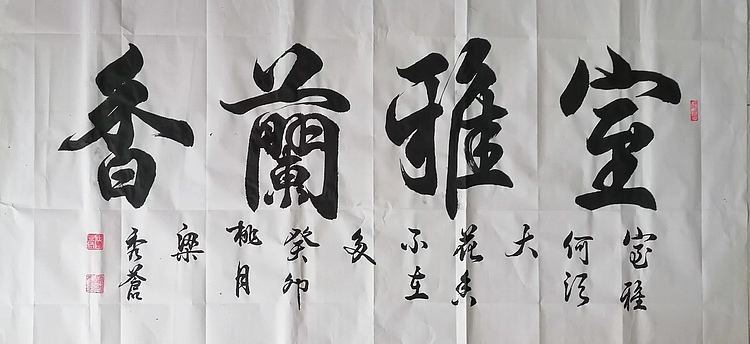 室雅蘭香
室雅
何須
大
花香
不在
多
癸卯
桃月
梁
秀蒼